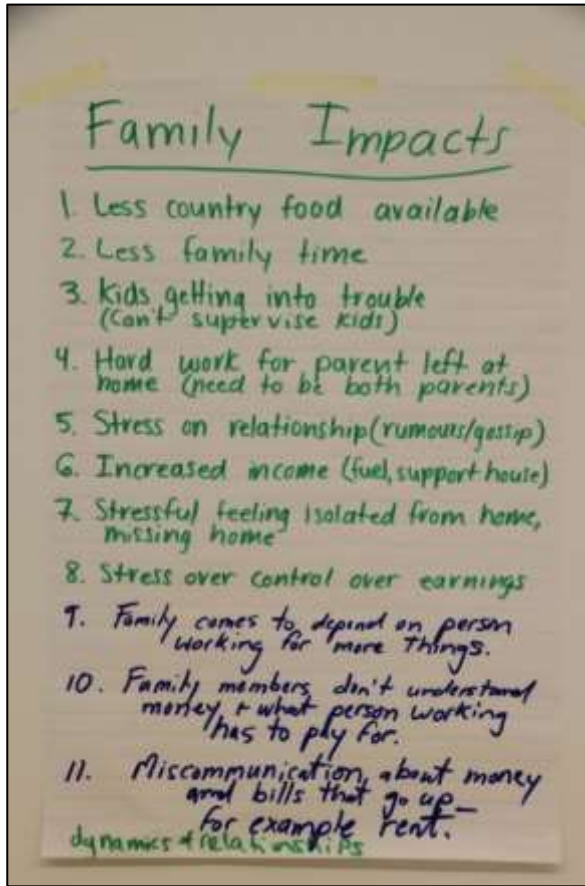 Family Impacts
1. Less country food available
2. Less family time
3. Kids getting into trouble
(Can't supervise kids)
4. Hard work for parent left at
home (need to be both parents)
5. Stress on relationship (rumours/gossip)
6. Increased income (fuel, support house)
7. Stressful feeling isolated from home,
missing home
8. Stress over control over earnings
9. Family comes to depend on person
working for more things.
10. Family members don't understand
money + what person working
has to pay for.
11. Miscommunication about money
and bills that go up –
for example rent.
dynamics + relationships